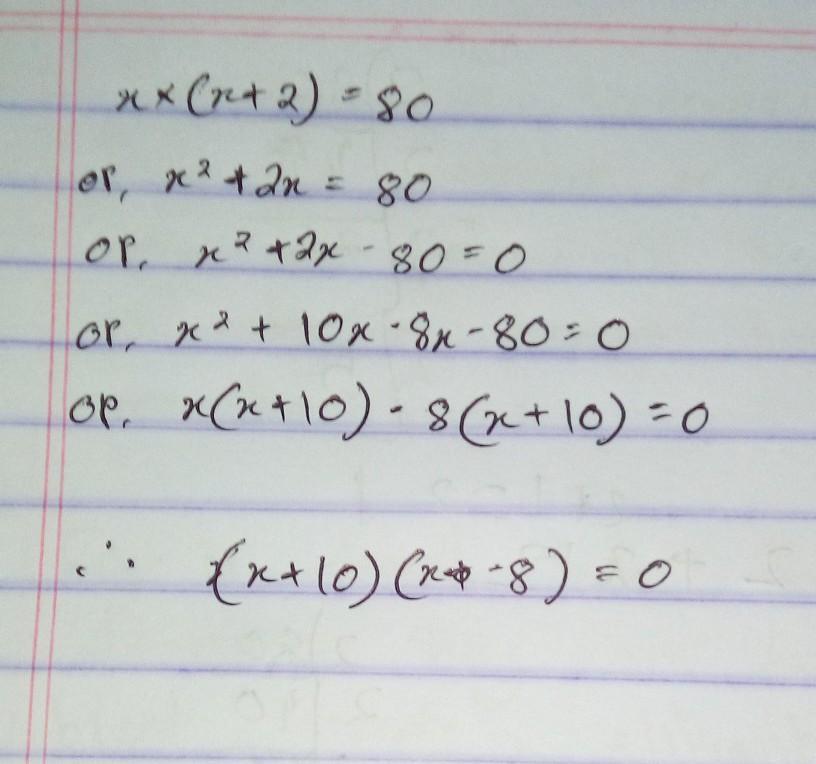 x × (x + 2) = 80
or, x² + 2x = 80
or, x² + 2x - 80 = 0
or, x² + 10x - 8x - 80 = 0
or, x(x + 10) - 8(x + 10) = 0
∴ (x + 10)(x - 8) = 0